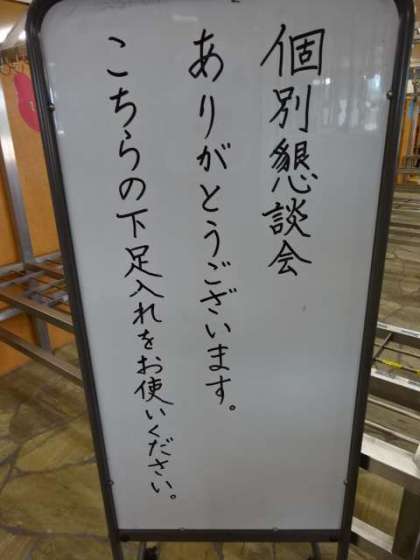 個別懇談会
ありがとうございます。
こちらの下足入れをお使いください。